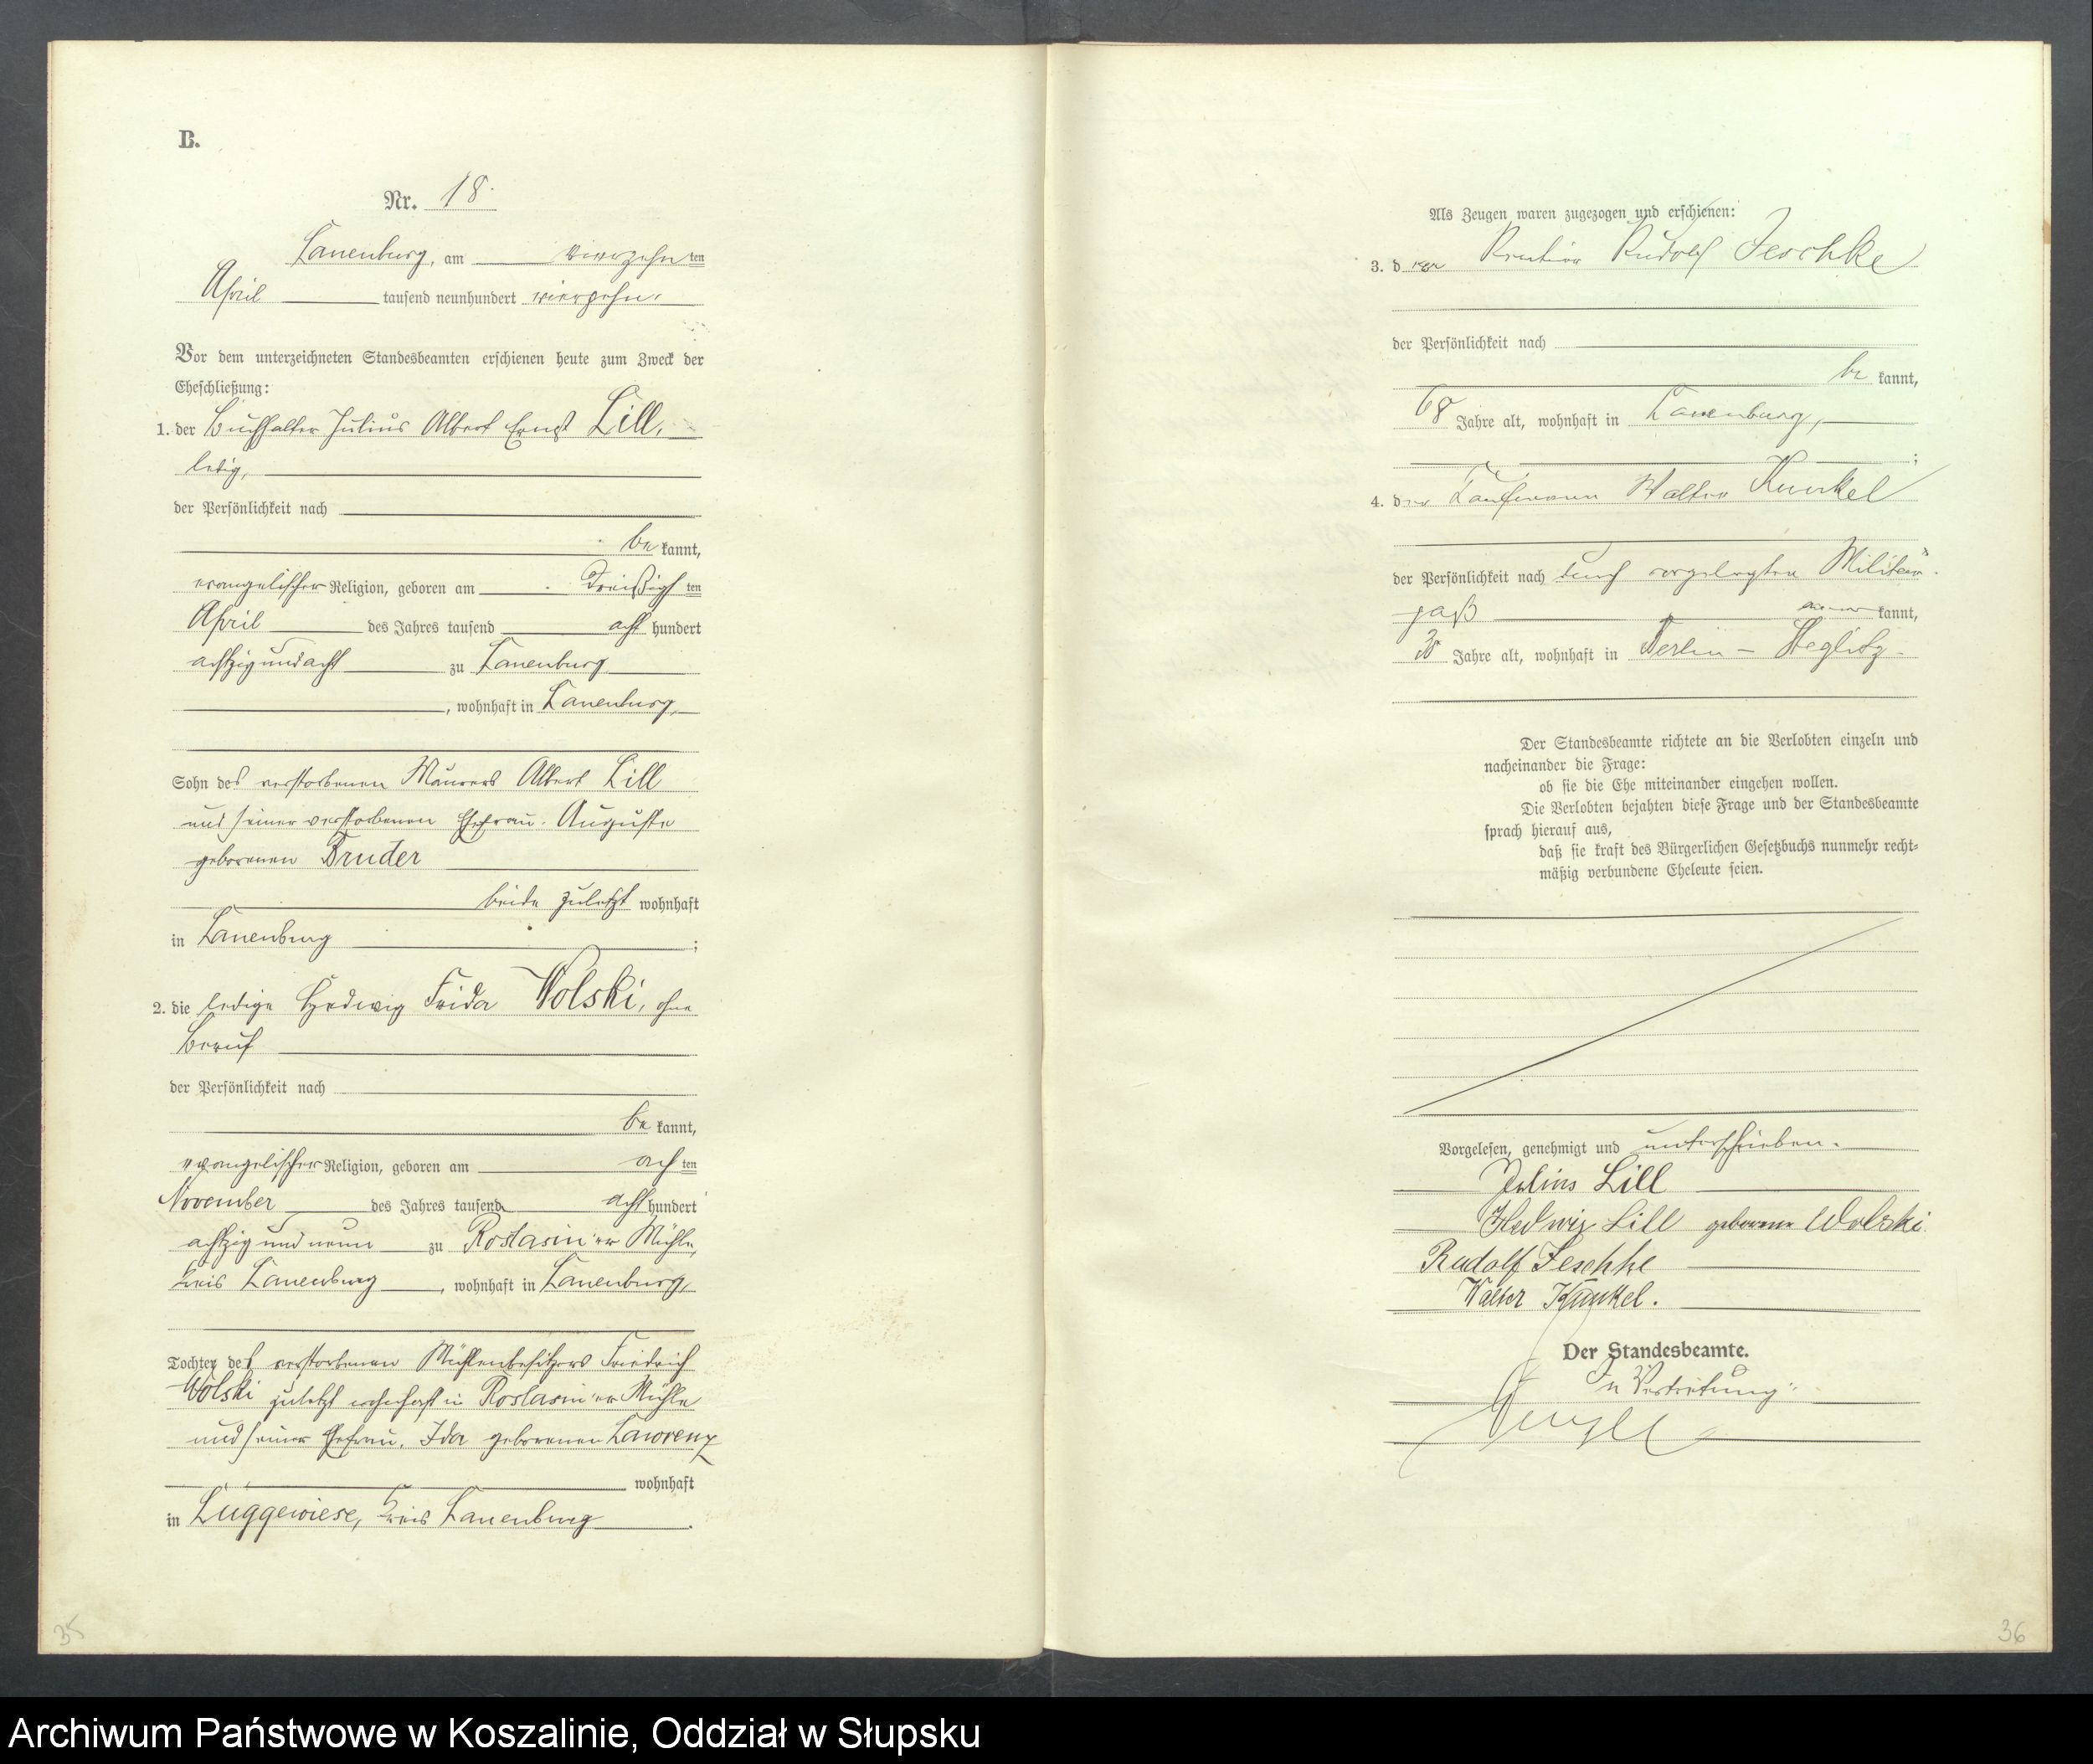 B.
Nr. 18.
Lauenburg, am vierzehnten
April tausend neunhundert vierzehn.
Vor dem unterzeichneten Standesbeamten erschienen heute zum Zweck der
Eheschließung:
1. der Buchhalter Julius Albert Ernst Lill,
ledig,
der Persönlichkeit nach
bekannt,
evangelischer Religion, geboren am dreißigsten
April des Jahres tausend acht hundert
achtzig und acht zu Lauenburg
, wohnhaft in Lauenburg,
Sohn des verstorbenen Maurers Albert Lill
und seiner verstorbenen Ehefrau Auguste
geborenen Bruder
beide zuletzt wohnhaft
in Lauenburg ;
2. die ledige Hedwig Frida Wolski, ohne
Beruf
der Persönlichkeit nach
bekannt,
evangelischer Religion, geboren am achten
November des Jahres tausend acht hundert
achtzig und neun zu Roslasin'er Mühle,
Kreis Lauenburg , wohnhaft in Lauenburg,
Tochter des verstorbenen Mühlenbesitzers Friedrich
Wolski zuletzt wohnhaft in Roslasin'er Mühle
und seiner Ehefrau, Ida geborenen Lawrenz
wohnhaft
in Luggewiese, Kreis Lauenburg .
35
Als Zeugen waren zugezogen und erschienen:
3. der Rentier Rudolf Jeschke
der Persönlichkeit nach
bekannt,
68 Jahre alt, wohnhaft in Lauenburg,
;
4. der Kaufmann Walter Kunkel
der Persönlichkeit nach durch vorgelegten Militär-
paß anerkannt,
Jahre alt, wohnhaft in Berlin-Steglitz.
Der Standesbeamte richtete an die Verlobten einzeln und
nacheinander die Frage:
ob sie die Ehe miteinander eingehen wollen.
Die Verlobten bejahten diese Frage und der Standesbeamte
sprach hierauf aus,
daß sie kraft des Bürgerlichen Gesetzbuchs nunmehr recht-
mäßig verbundene Eheleute seien.
Vorgelesen, genehmigt und unterschrieben.
Julius Lill
Hedwig Lill geborene Wolski.
Rudolf Jeschke
Walter Kunkel.
Der Standesbeamte.
In Vertretung:
36
Archiwum Państwowe w Koszalinie, Oddział w Słupsku